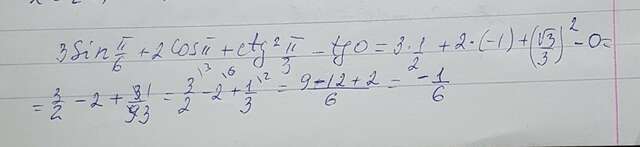 3 Sin π/6 + 2 Cos π + ctg² π/3 - tg 0 = 3·1/2 + 2·(-1) + (√3/3)² - 0 =
= 3/2 - 2 + 3/9 1/3 = 3/2 \3 - 2 \6 + 1/3 \2 = (9 - 12 + 2)/6 = - 1/6